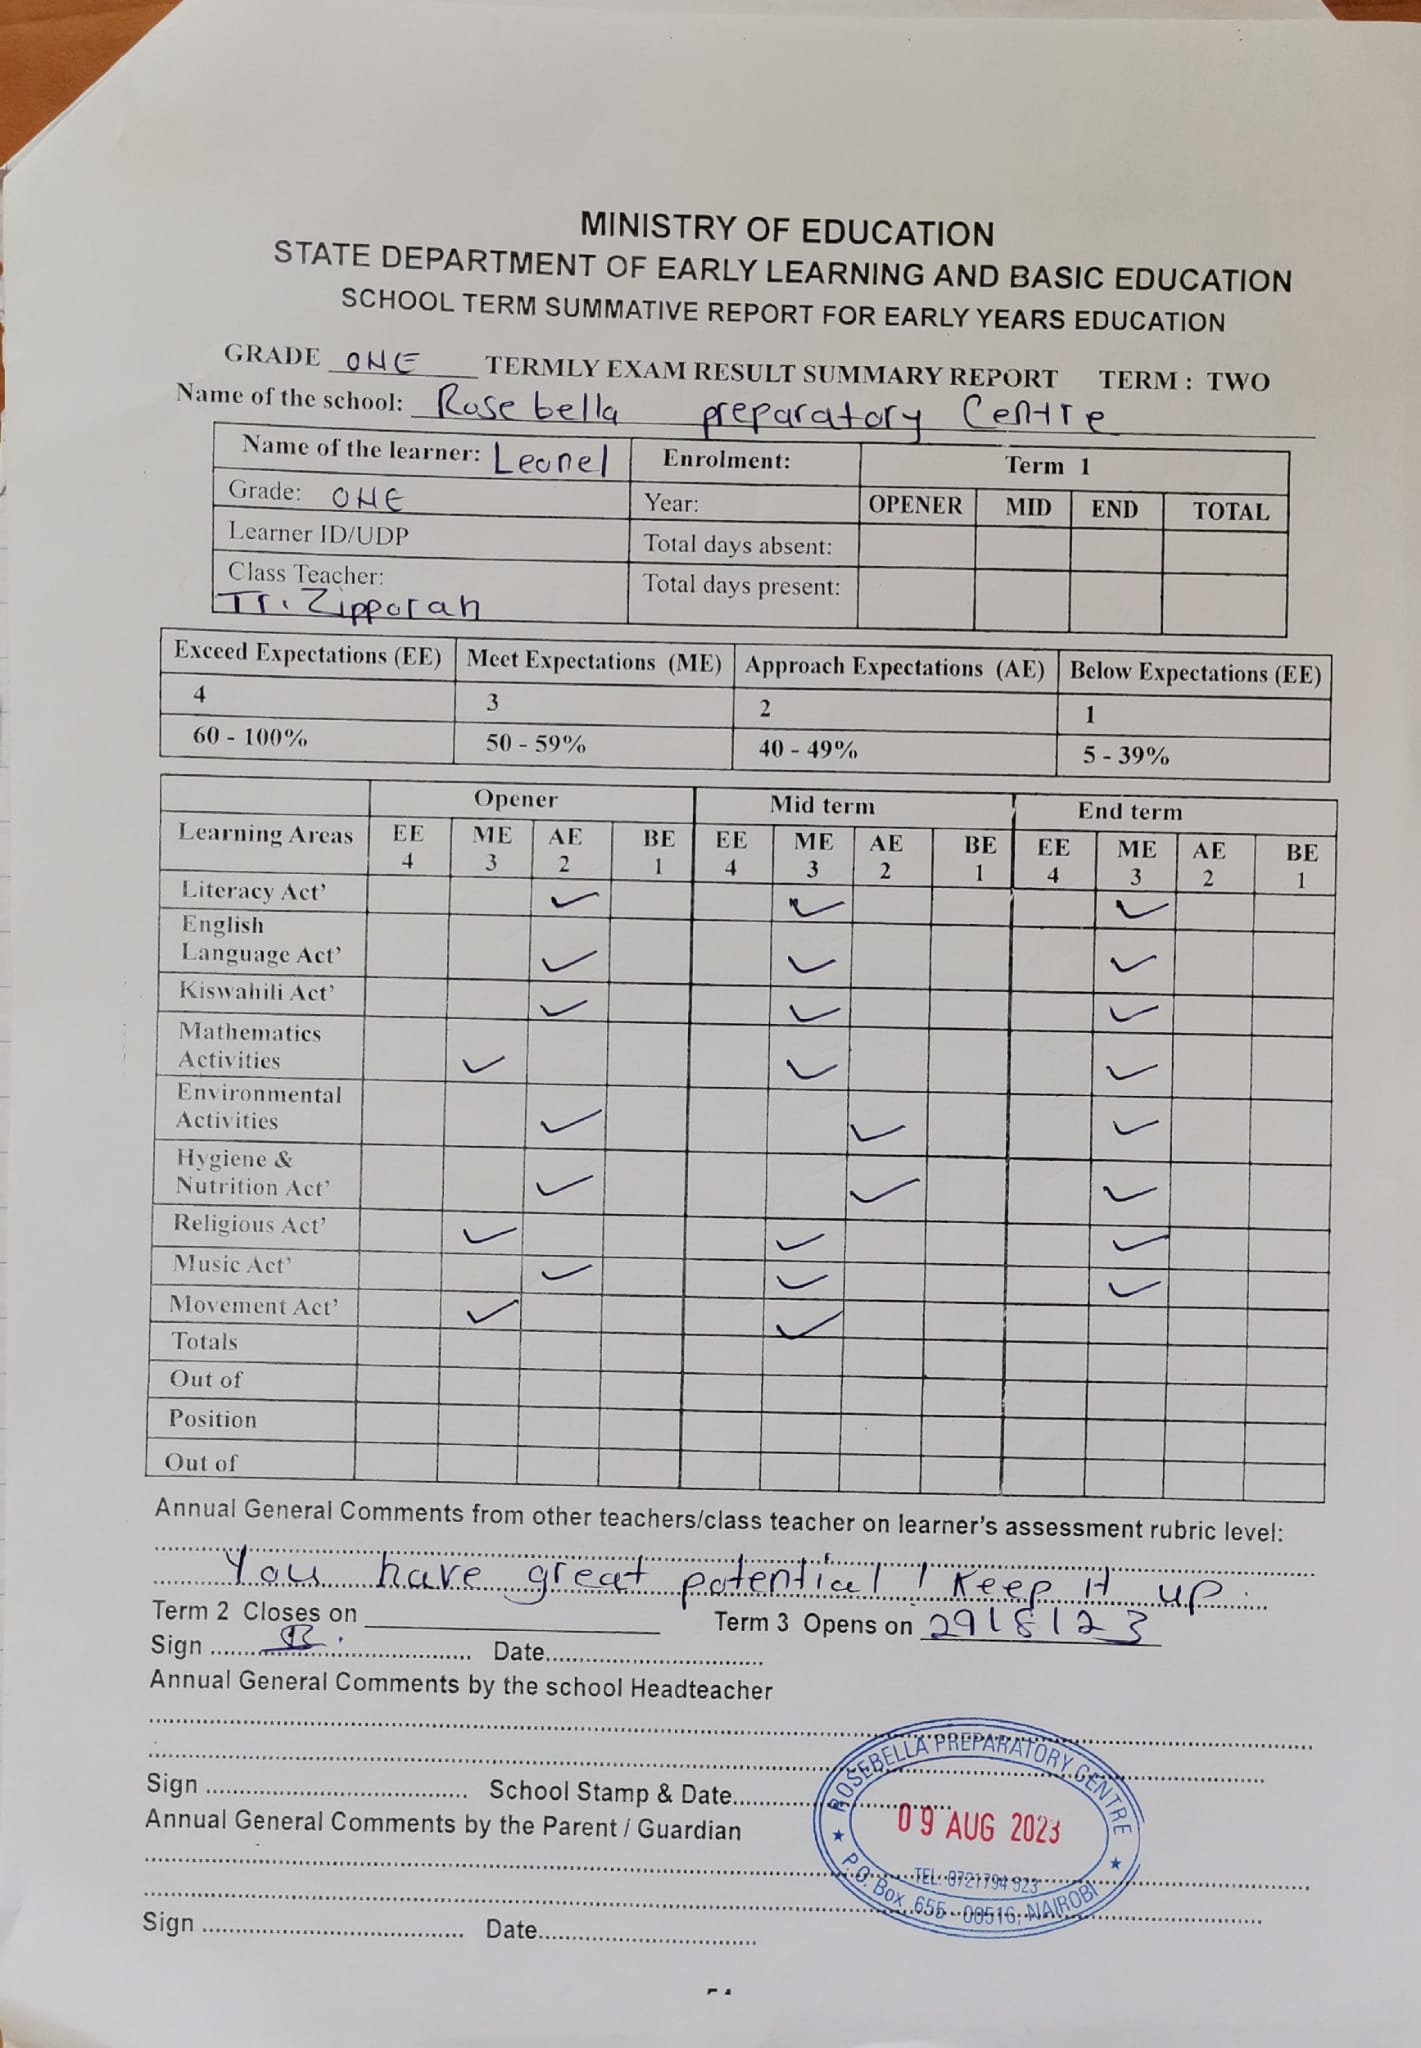 MINISTRY OF EDUCATION
STATE DEPARTMENT OF EARLY LEARNING AND BASIC EDUCATION
SCHOOL TERM SUMMATIVE REPORT FOR EARLY YEARS EDUCATION
GRADE ONE TERMLY EXAM RESULT SUMMARY REPORT TERM : TWO
Name of the school: Rosebella preparatory Centre
Name of the learner: Leonel Enrolment: Term 1
Grade: ONE Year: OPENER MID END TOTAL
Learner ID/UDP Total days absent:
Class Teacher: Total days present:
Tr. Zipporah
Exceed Expectations (EE) Meet Expectations (ME) Approach Expectations (AE) Below Expectations (EE)
4 3 2 1
60 - 100% 50 - 59% 40 - 49% 5 - 39%
Opener Mid term End term
Learning Areas EE ME AE BE EE ME AE BE EE ME AE BE
4 3 2 1 4 3 2 1 4 3 2 1
Literacy Act' ✓ ✓ ✓
English
Language Act' ✓ ✓ ✓
Kiswahili Act' ✓ ✓ ✓
Mathematics
Activities ✓ ✓ ✓
Environmental
Activities ✓ ✓ ✓
Hygiene &
Nutrition Act' ✓ ✓ ✓
Religious Act' ✓ ✓ ✓
Music Act' ✓ ✓ ✓
Movement Act' ✓ ✓
Totals
Out of
Position
Out of
Annual General Comments from other teachers/class teacher on learner's assessment rubric level:
You have great potential! Keep it up.
Term 2 Closes on Term 3 Opens on 29/8/23
Sign Date
Annual General Comments by the school Headteacher
Sign School Stamp & Date
Annual General Comments by the Parent / Guardian
Sign Date
ROSEBELLA PREPARATORY CENTRE
09 AUG 2023
TEL: 0721794 523
P.O. Box 655 - 00516, NAIROBI